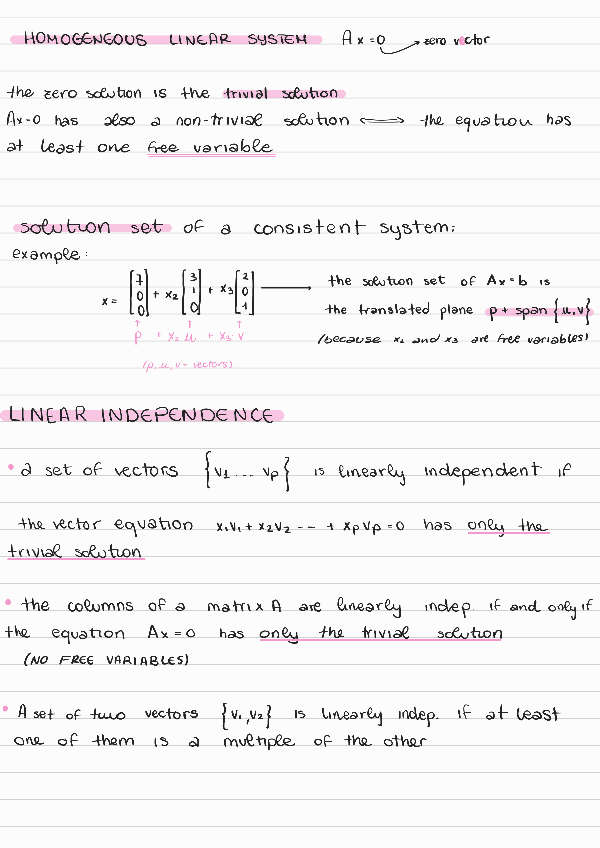 HOMOGENEOUS LINEAR SYSTEM Ax=0 → zero vector
the zero solution is the trivial solution
Ax=0 has also a non-trivial solution ⟺ the equation has
at least one free variable
solution set of a consistent system:
example:
x = [7 0 0] + x2 [3 1 0] + x3 [2 0 1] → the solution set of Ax=b is
the translated plane p + span {u,v}
p + x2 u + x3 v
(because x2 and x3 are free variables)
(p, u, v = vectors)
LINEAR INDEPENDENCE
• a set of vectors {v1 ... vp} is linearly independent if
the vector equation x1v1 + x2v2 --- + xpvp = 0 has only the
trivial solution
• the columns of a matrix A are linearly indep. if and only if
the equation Ax=0 has only the trivial solution
(NO FREE VARIABLES)
• A set of two vectors {v1,v2} is linearly indep. if at least
one of them is a multiple of the other